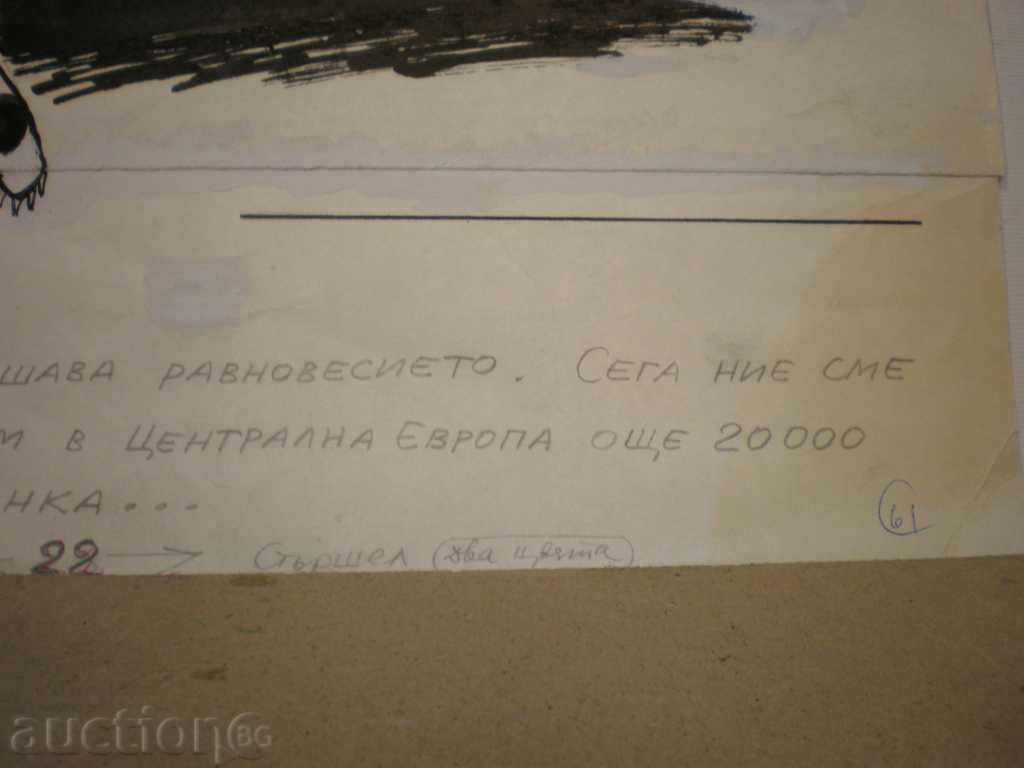 ШАВА РАВНОВЕСИЕТО. СЕГА НИЕ СМЕ
М В ЦЕНТРАЛНА ЕВРОПА ОЩЕ 20000
НКА...
61
22 Стършел (два цвята)
auctionBG